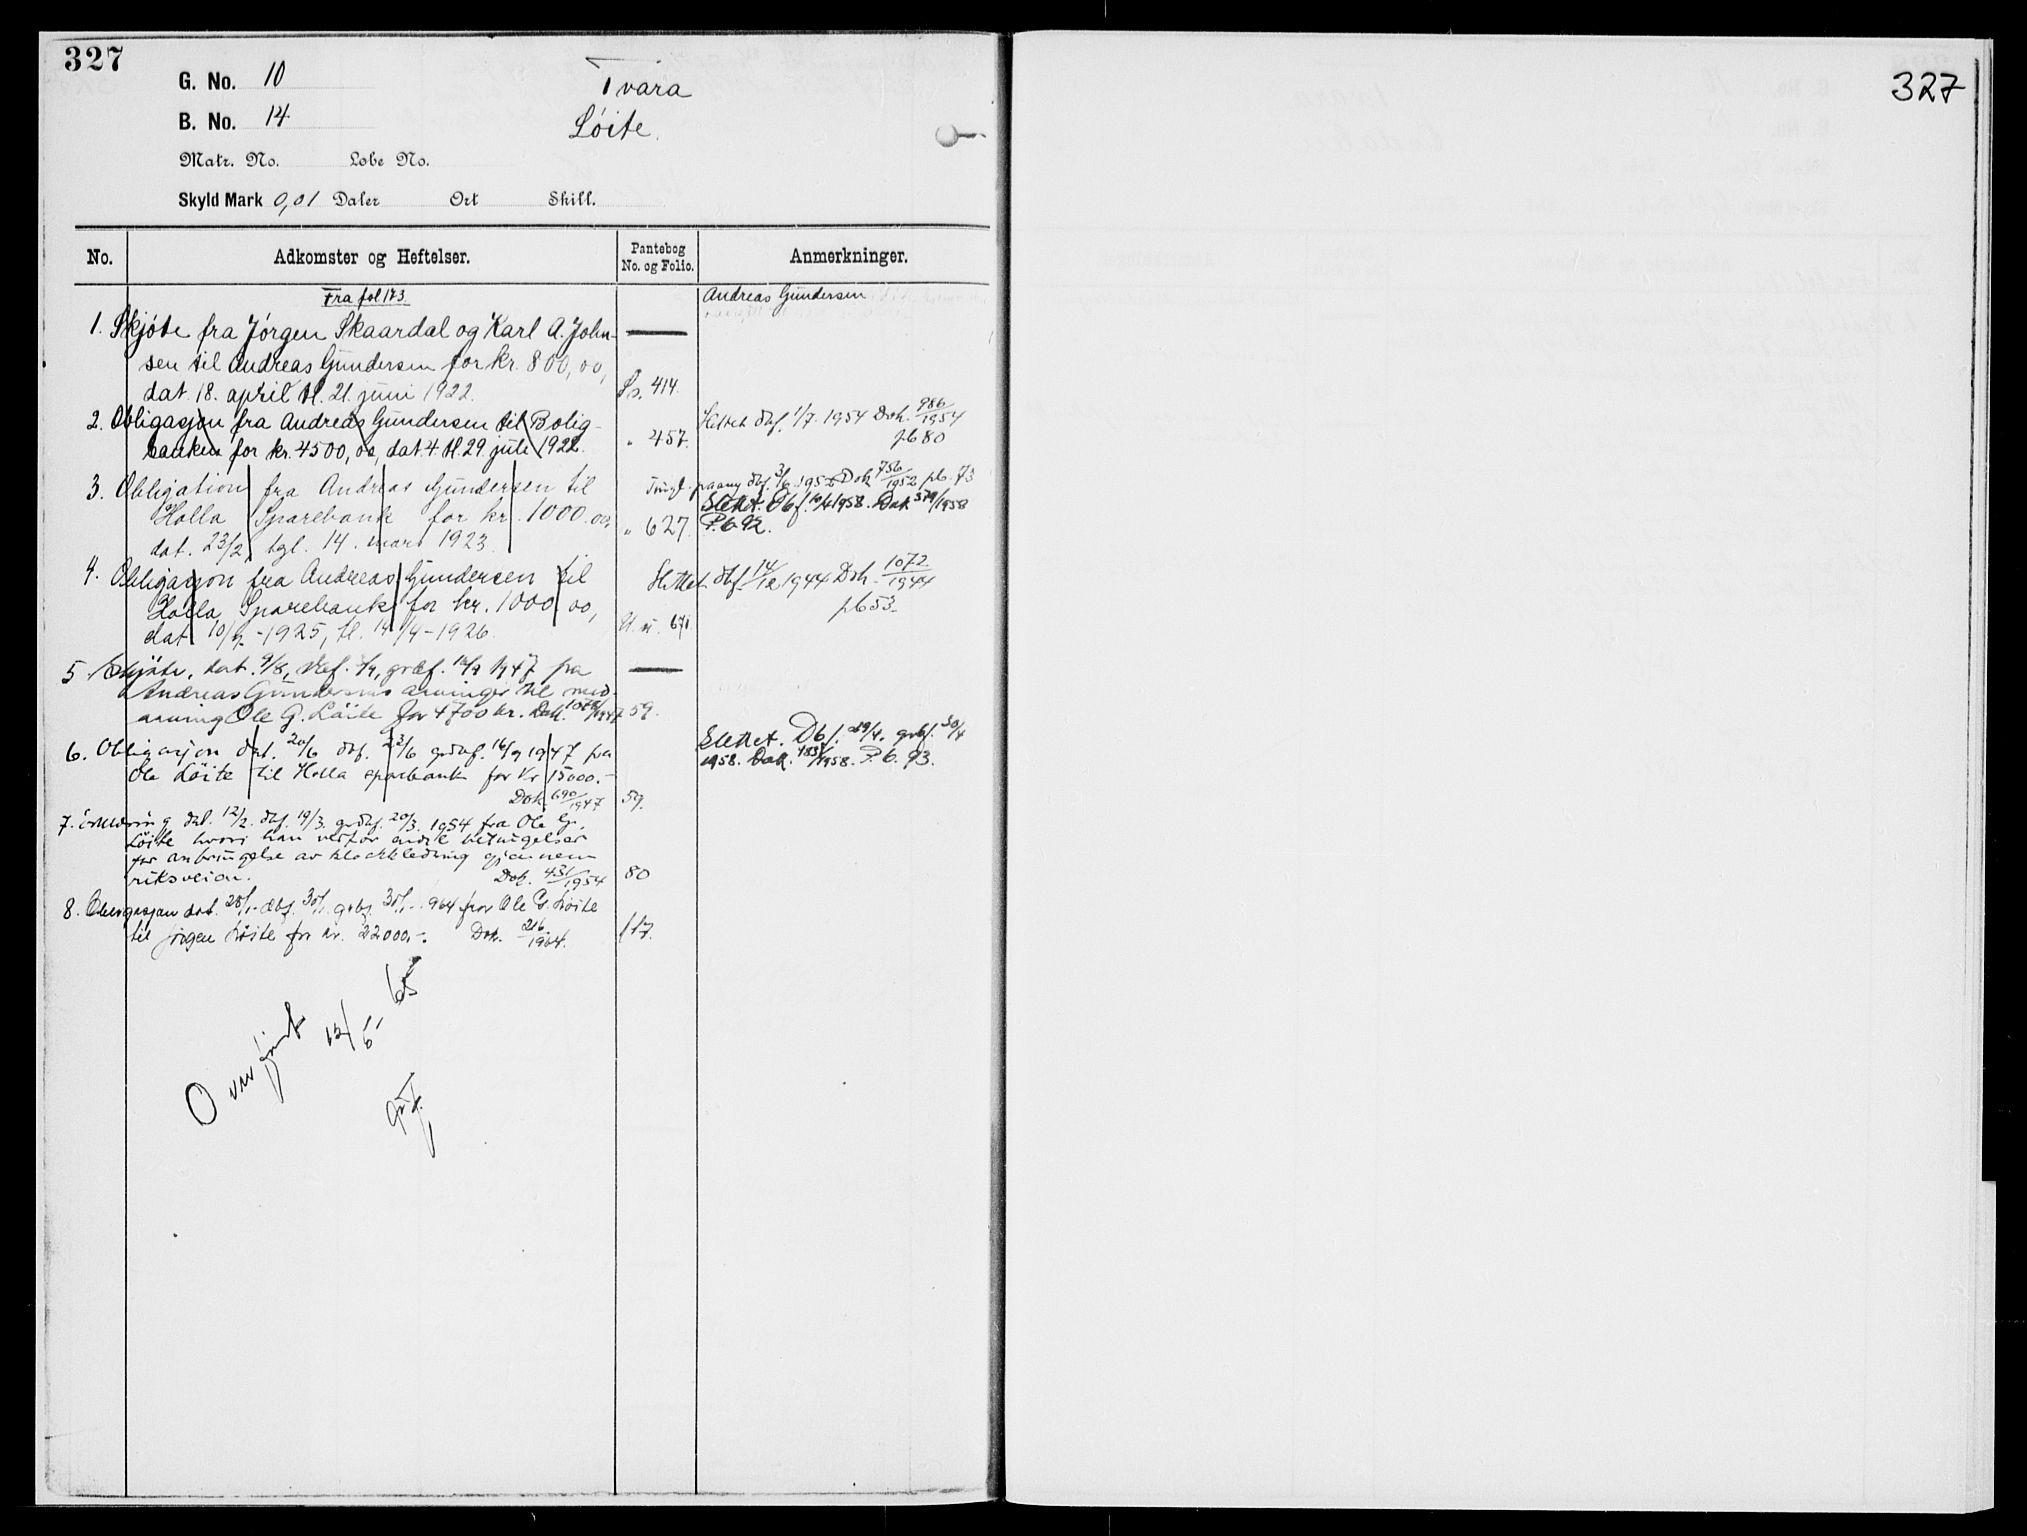 327
G. No. 10
Tvara
B. No. 14
Löite.
Matr. No. Løbe No.
Skyld Mark 0,01 Daler Ort Skill.
No. Adkomster og Heftelser. Pantebog No. og Folio. Anmerkninger.
Fra fol 173.
Andreas Gundersen
1. Skjöte fra Jörgen Skaardal og Karl A. John-
sen til Andreas Gundersen for kr. 800,00,
dat. 18. april tl. 21. juni 1922. Lo. 414.
2. Obligasjon fra Andreas Gundersen til Bolig-
banken for kr. 4500,00, dat. 4. tl. 29. juli 1922. " 457.
Slettet dbf. 1/7. 1954 Dok. 986/1954
pb 80
3. Obligation fra Andreas Gundersen til
Holla Sparebank for kr. 1000.00,
dat. 23/2, tgl. 14. mars 1923. " 627.
Tingl. paany dbf. 3/6 1952 Dok 756/1952 pb. 73
Slettet. Dbf. 10/4 1958. Dok 379/1958
P.b. 92.
4. Obligasjon fra Andreas Gundersen til
Holla Sparebank for kr. 1000,00,
dat. 10/9-1925, tl. 14/4-1926. 671
Slettet dbf. 14/12 1944 Dok. 1072/1944
pb 53.
5 Skjöte, dat. 9/8, grdbf. 1947 fra
Andreas Gundersens arvinger til med-
arving Ole G. Löite for 4700 kr. Dok. 1078/1947 59.
6. Obligasjon dat. 20/6 dbf. 23/6 grdbf. 16/9 1947 fra
Ole Löite til Holla sparebank for kr 15000.-
Dok. 690/1947 59.
Slettet. Dbf. 29/4. grbf. 30/4
1958. Dok. 483/1958. P.b. 93.
7. Erklæring dat. 12/2. dbf. 19/3. grdbf. 20/3. 1954 fra Ole G.
Löite hvori han vedtar endel betingelser
for anbringelse av kloakkledning gjennem
riksveien. Dok. 431/1954 80
8. Obligasjon dat. 28/1.- dbf. 30/1. grbf. 30/1.- 964 fra Ole G. Löite
til Jörgen Löite for kr. 22000,-. Dok. 216/1964. 117.
Overfört 13/11 65
327